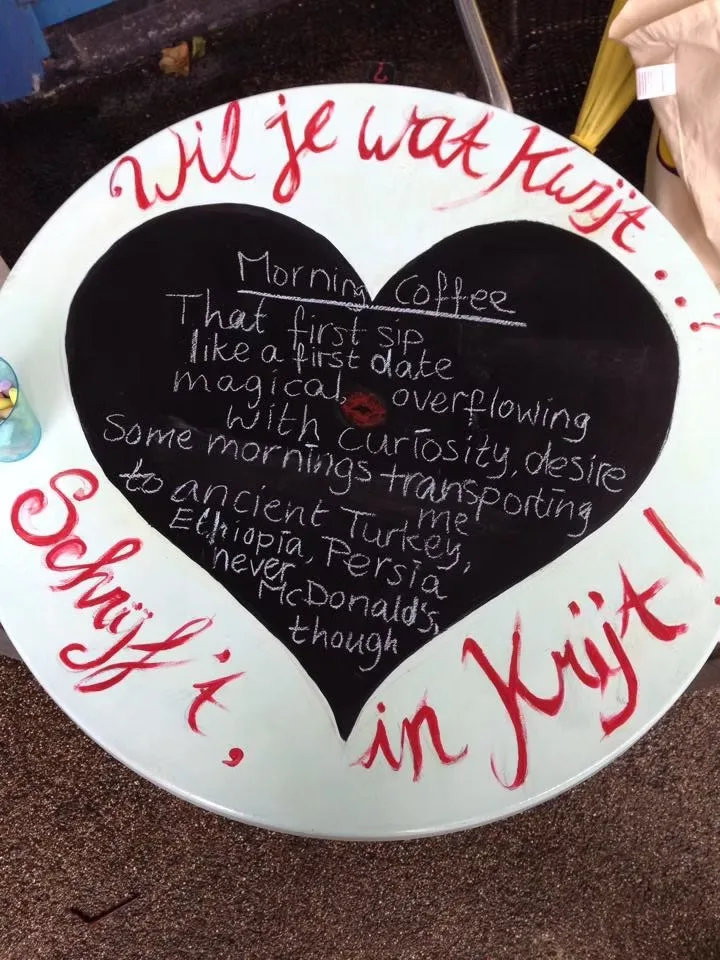 Wil je wat Kwijt...?
Morning Coffee
That first sip
like a first date
magical, overflowing
with curiosity, desire
Some mornings transporting
me
to ancient Turkey,
Ethiopia, Persia
never
McDonald's,
though
Schrijf 't,
in Krijt!